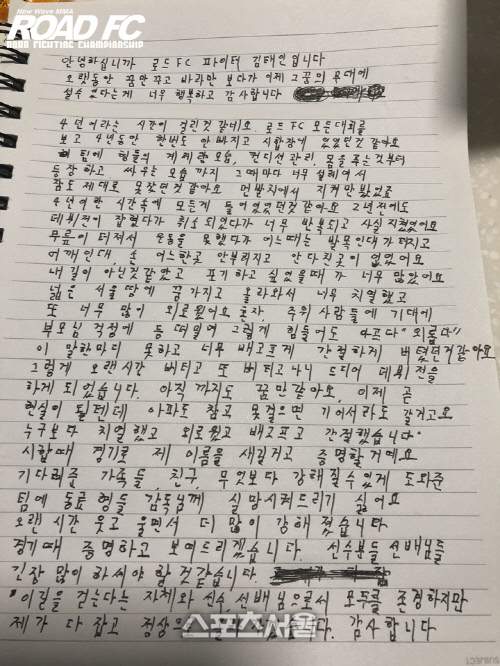 New Wave MMA
ROAD FC
ROAD FIGHTING CHAMPIONSHIP
안녕하십니까 로드FC 파이터 김태인 입니다
오랫동안 꿈만꾸고 바라만 보다가 이제 그꿈의 무대에
설수 있다는게 너무 행복하고 감사합니다
4년이라는 시간이 걸린것 같네요. 로드FC 모든대회를
보고 4년동안 한번도 안빠지고 시합장에 있었던것 같아요
팀에 형들의 계체량 모습, 컨디션 관리, 몸을 푸는것부터
등장하고 싸우는 모습 까지 그때마다 너무 설레여서
잠도 제대로 못잤던것 같아요 먼발치에서 지켜만 봤었고
4년이란 시간속에 모든게 들어있었던것 같아요 2년전에도
데뷔전이 잡혔다가 취소되었다가 너무 반복되고 사실 지쳤었어요
무릎이 터져서 운동을 못했다가 어느때는 발목인대가 터지고
어깨인대, 손 어느한곳 안부러지고 안다친곳이 없었어요
내길이 아닌것같았고 포기하고 싶었을때가 너무 많았어요
넓은 서울 땅에 꿈가지고 올라와서 너무 치열했고
또 너무 많이 외로웠어요 혼자, 주위 사람들에 기대에
부모님 걱정에 등 떠밀어 그렇게 힘들어도 "아프다" "외롭다"
이 말한마디 못하고 너무 배고프게 간절하게 버텼던거같아요
그렇게 오랜시간 버티고 또 버티고나니 드디어 데뷔전을
하게 되었습니다. 아직 까지도 꿈만같아요, 이제 곧
현실이 될텐데 아파도 참고 못걸으면 기어서라도 갈거고요
누구보다 치열했고 외로웠고 배고프고 간절했습니다.
시합때 경기로 제 이름을 새길거고 증명할거에요
기다려준 가족들, 친구, 무엇보다 강해질수있게 도와준
팀에 동료 형들 감독님께 실망시켜드리기 싫어요
오랜 시간 웃고 울면서 더 많이 강해 졌습니다
경기때 증명하고 보여드리겠습니다. 선수분들 선배님들
긴장 많이 하셔야 할것같습니다.
"이길을 걷는다는 자체와 선수, 선배님으로서 모두를 존경하지만
제가 다 잡고 정상으 습니다. 감사합니다
스포츠서울
SUBJECT